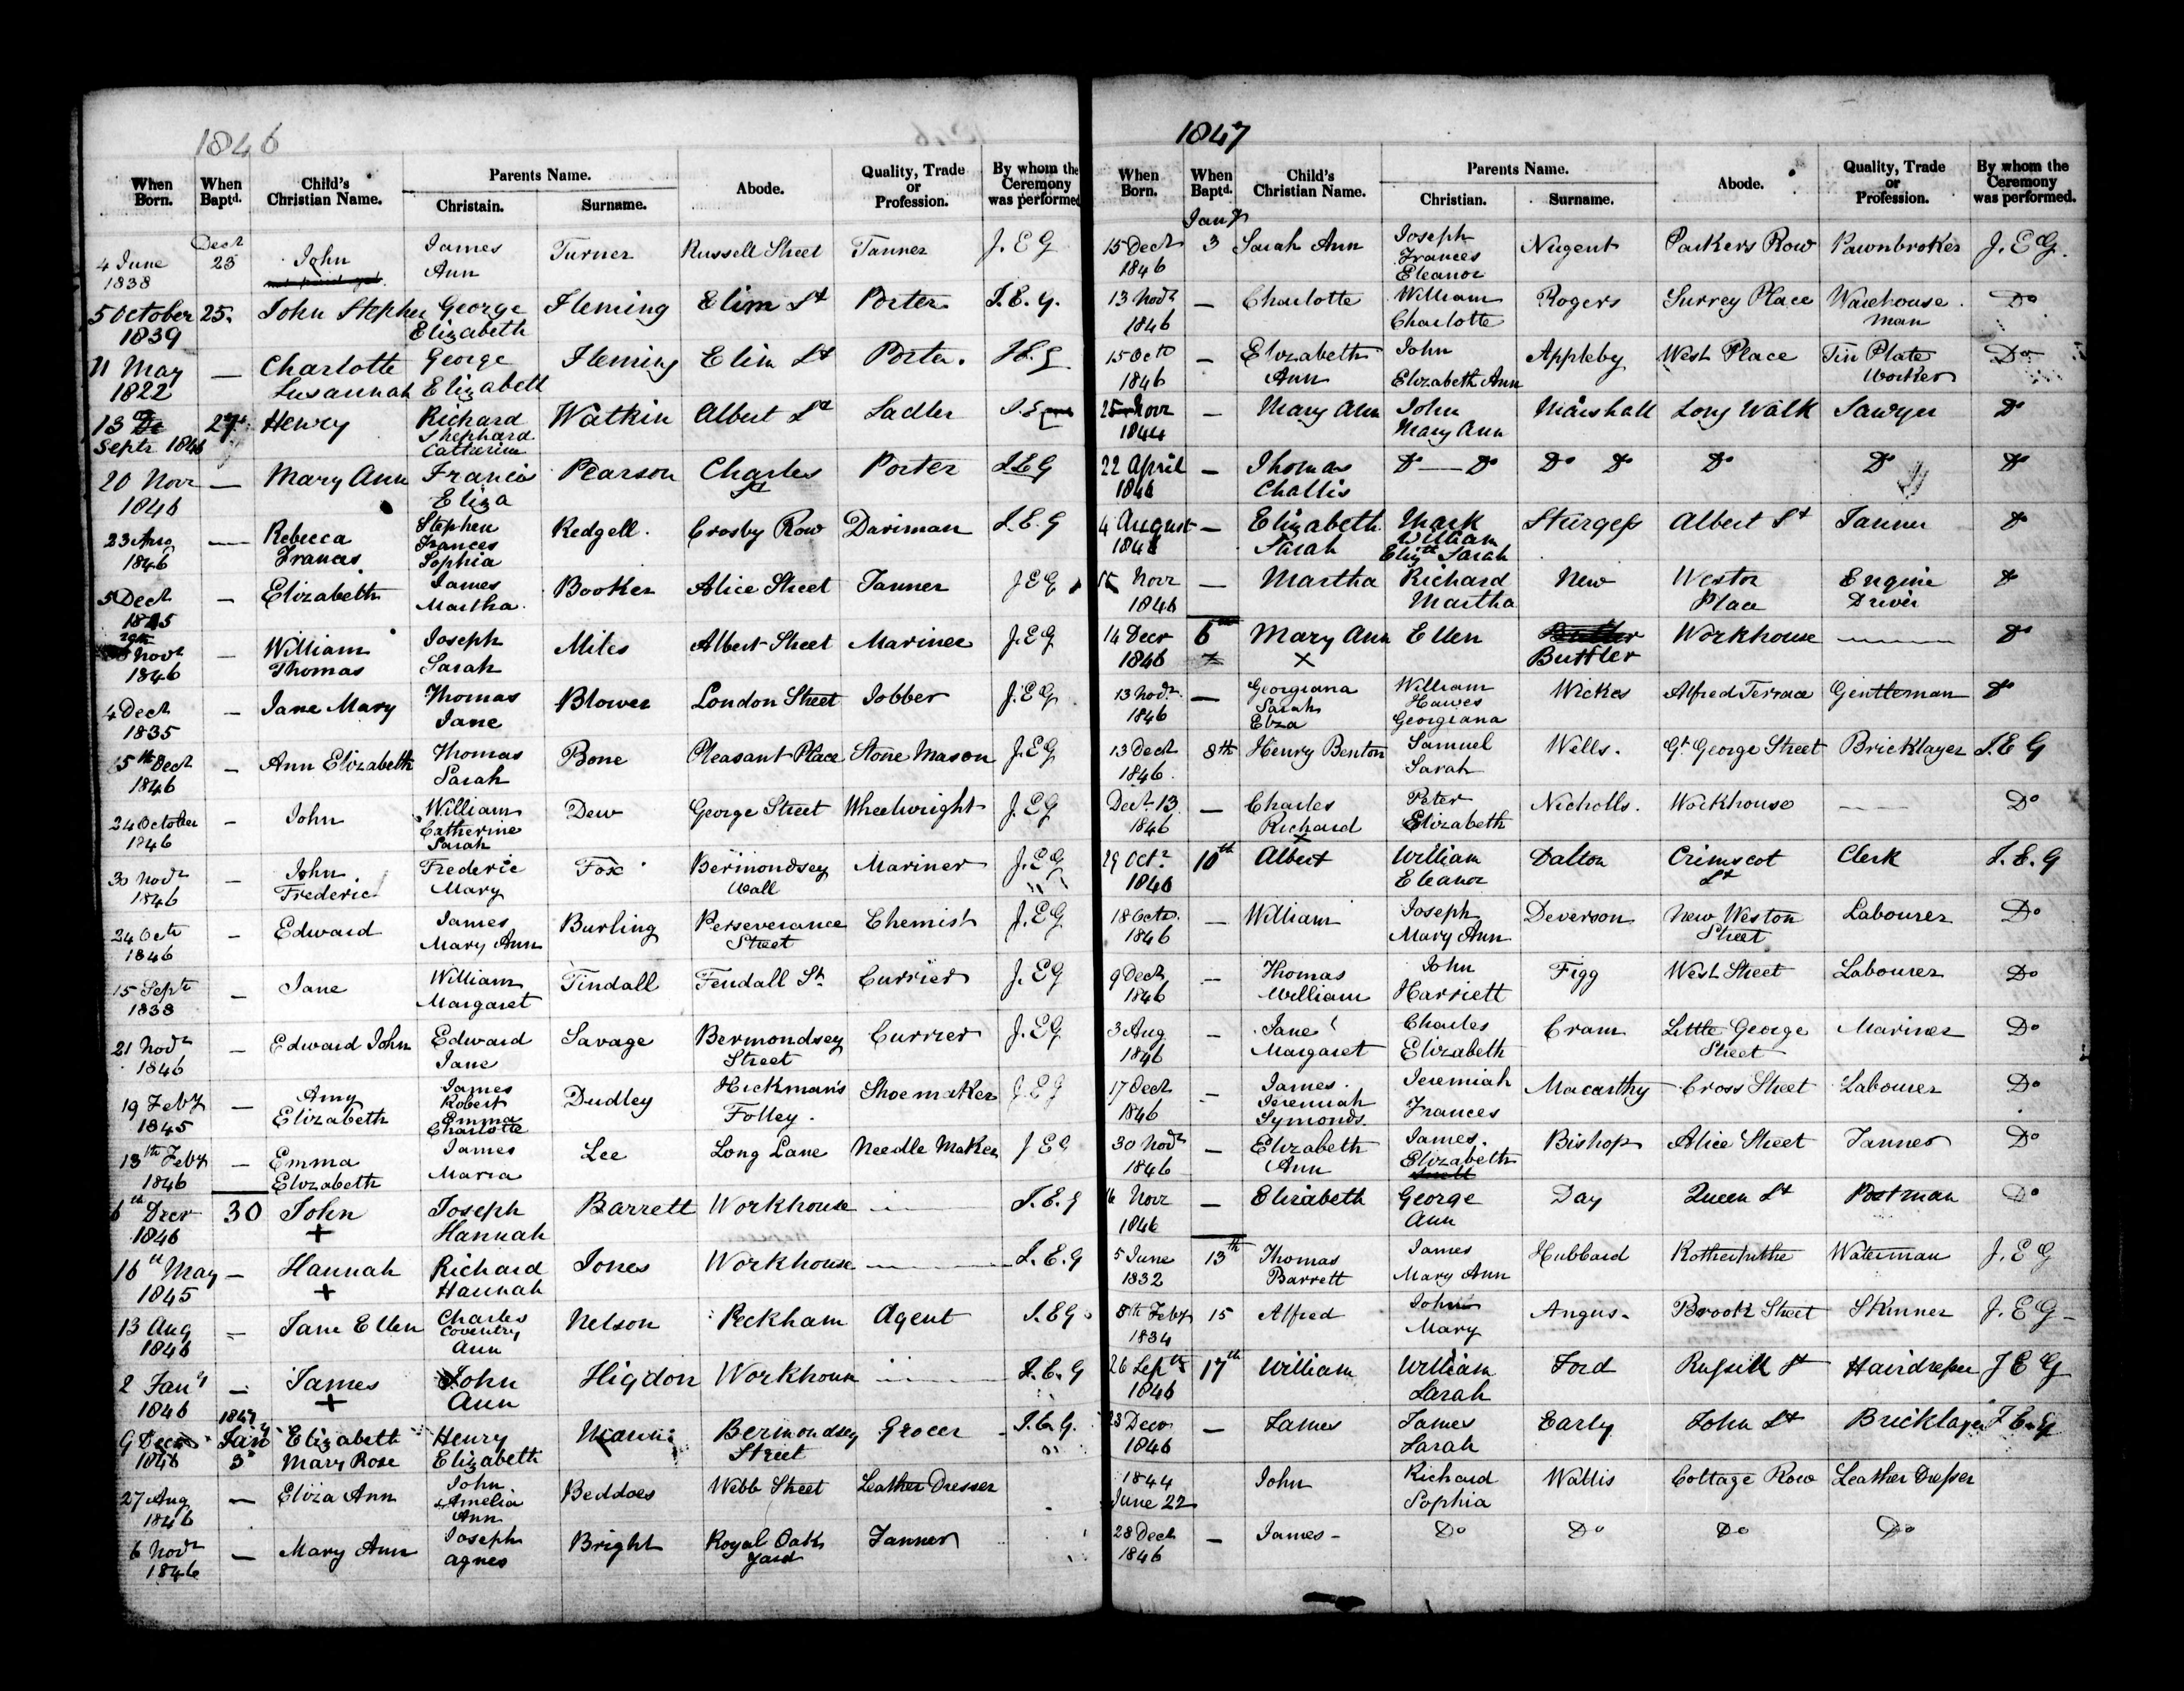 1846
When Born. When Baptd. Child's Christian Name. Parents Name. Christain. Surname. Abode. Quality, Trade or Profession. By whom the Ceremony was performed
4 June Decr 25 John James Turner Russell Street Tanner J. E G
1838 Ann
5 October 25. John Stephen George Fleming Elim St Porter J. E. G.
1839 Elizabeth
11 May — Charlotte George Fleming Elim St Porter.
1822 Susannah Elizabeth
13 27 Henry Richard Watkin Albert St Sadler
Septr 1846 Shephard
Catharine
20 Novr — Mary Ann Francis Pearson Charles Porter J.E G
1846 Eliza St
23 Aug — Rebecca Stephen Redgell. Crosby Row Dariman J. E. G
1846 Frances Frances
Sophia
5 Decr — Elizabeth James Booker Alice Street Tanner J E G
Martha
Novr — William Joseph Miles Albert Street Mariner J. E G
1846 Thomas Sarah
4 Decr — Jane Mary Thomas Blower London Street Jobber J. E G
1835 Jane
15th Decr — Ann Elizabeth Thomas Bone Pleasant Place Stone Mason J. E G
1846 Sarah
24 October — John William Dew George Street Wheelwright J. E G
1846 Catherine
Sarah
30 Novr — John Frederic Fox Bermondsey Mariner J. E G
1846 Frederic Mary Wall
24 Octr — Edward James Burling Perseverance Chemist J. E G
1846 Mary Ann Street
15 Septr — Jane William Tindall Fendall St. Currier J. E G
1838 Margaret
21 Novr — Edward John Edward Savage Bermondsey Currier J. E G
1846 Jane Street
19 Feby — Amy James Dudley Hickman's Shoemaker J. E G
1845 Elizabeth Robert Folley.
Emma
Charlotte
13th Feby — Emma James Lee Long Lane Needle Maker J E G
1846 Elizabeth Maria
6th Decr 30 John Joseph Barrett Workhouse — J. E. G
1846 + Hannah
16th May — Hannah Richard Jones Workhouse — J. E. G
1845 + Hannah
13 Aug — Jane Ellen Charles Nelson Peckham Agent J. E G
1846 Coventry
Ann
2 Jany — James John Higdon Workhouse — J. E. G
1846 + Ann
9 Decr 1847 Jany 3 Elizabeth Henry Mann Bermondsey Grocer J. E. G.
1846 Mary Rose Elizabeth Street
27 Aug — Eliza Ann John Beddoes Webb Street Leather Dresser
1846 Amelia
Ann
6 Novr — Mary Ann Joseph Bright Royal Oak Tanner
1846 Agnes Yard
1847
When Born. When Baptd. Child's Christian Name. Parents Name. Christian. Surname. Abode. Quality, Trade or Profession. By whom the Ceremony was performed.
Jany
15 Decr 3 Sarah Ann Joseph Nugent Parkers Row Pawnbroker J. E G.
1846 Frances
Eleanor
13 Novr — Charlotte William Rogers Surrey Place Warehouse Do
1846 Charlotte man
15 Octr — Elizabeth John Appleby West Place Tin Plate Do
1846 Ann Elizabeth Ann Worker
25 Novr — Mary Ann John Marshall Long Walk Sawyer Do
1844 Mary Ann
22 April — Thomas Do — Do Do Do Do Do Do
1846 Challis
4 August — Elizabeth Mark Sturgess Albert St Tanner Do
1846 Sarah William
Elizth Sarah
Novr — Martha Richard New Weston Engine Do
1846 Martha Place Driver
14 Decr 6 Mary Ann Ellen Workhouse — Do
1846 × Buttler
13 Novr — Georgiana William Wickes Alfred Terrace Gentleman Do
1846 Sarah Hawes
Eliza Georgiana
13 Decr 8th Henry Benton Samuel Wells. Gt. George Street Bricklayer J. E G
1846 Sarah
Decr 13 — Charles Peter Nicholls. Workhouse — Do
1846 Richard Elizabeth
×
29 Octr 10th Albert William Dalton Crimscot Clerk J. E. G
1846 Eleanor St
18 Octr. — William Joseph Deverson New Weston Labourer Do
1846 Mary Ann Street
9 Decr — Thomas John Figg West Street Labourer Do
1846 William Harriett
3 Aug — Jane Charles Cram Little George Mariner Do
1846 Margaret Elizabeth Street
17 Decr — James Jeremiah Macarthy Cross Street Labourer Do
1846 Jeremiah Frances
Symonds
30 Novr — Elizabeth James Bishop Alice Street Tanner Do
1846 Ann Elizabeth
16 Novr — Elizabeth George Day Queen St Postman Do
1846 Ann
5 June 13th Thomas James Hubbard Rotherhithe Waterman J. E G
1832 Barrett Mary Ann
8th Feby 15 Alfred John Angus. Brook Street Skinner J. E G
1834 Mary
26 Septr 17th William William Ford Russell St Hairdresser J E G
1846 Sarah
23 Decr — James James Early John St Bricklayer J. E. G
1846 Sarah
1844 John Richard Wallis Cottage Row Leather Dresser
June 22 Sophia
28 Decr — James — Do Do Do Do
1846